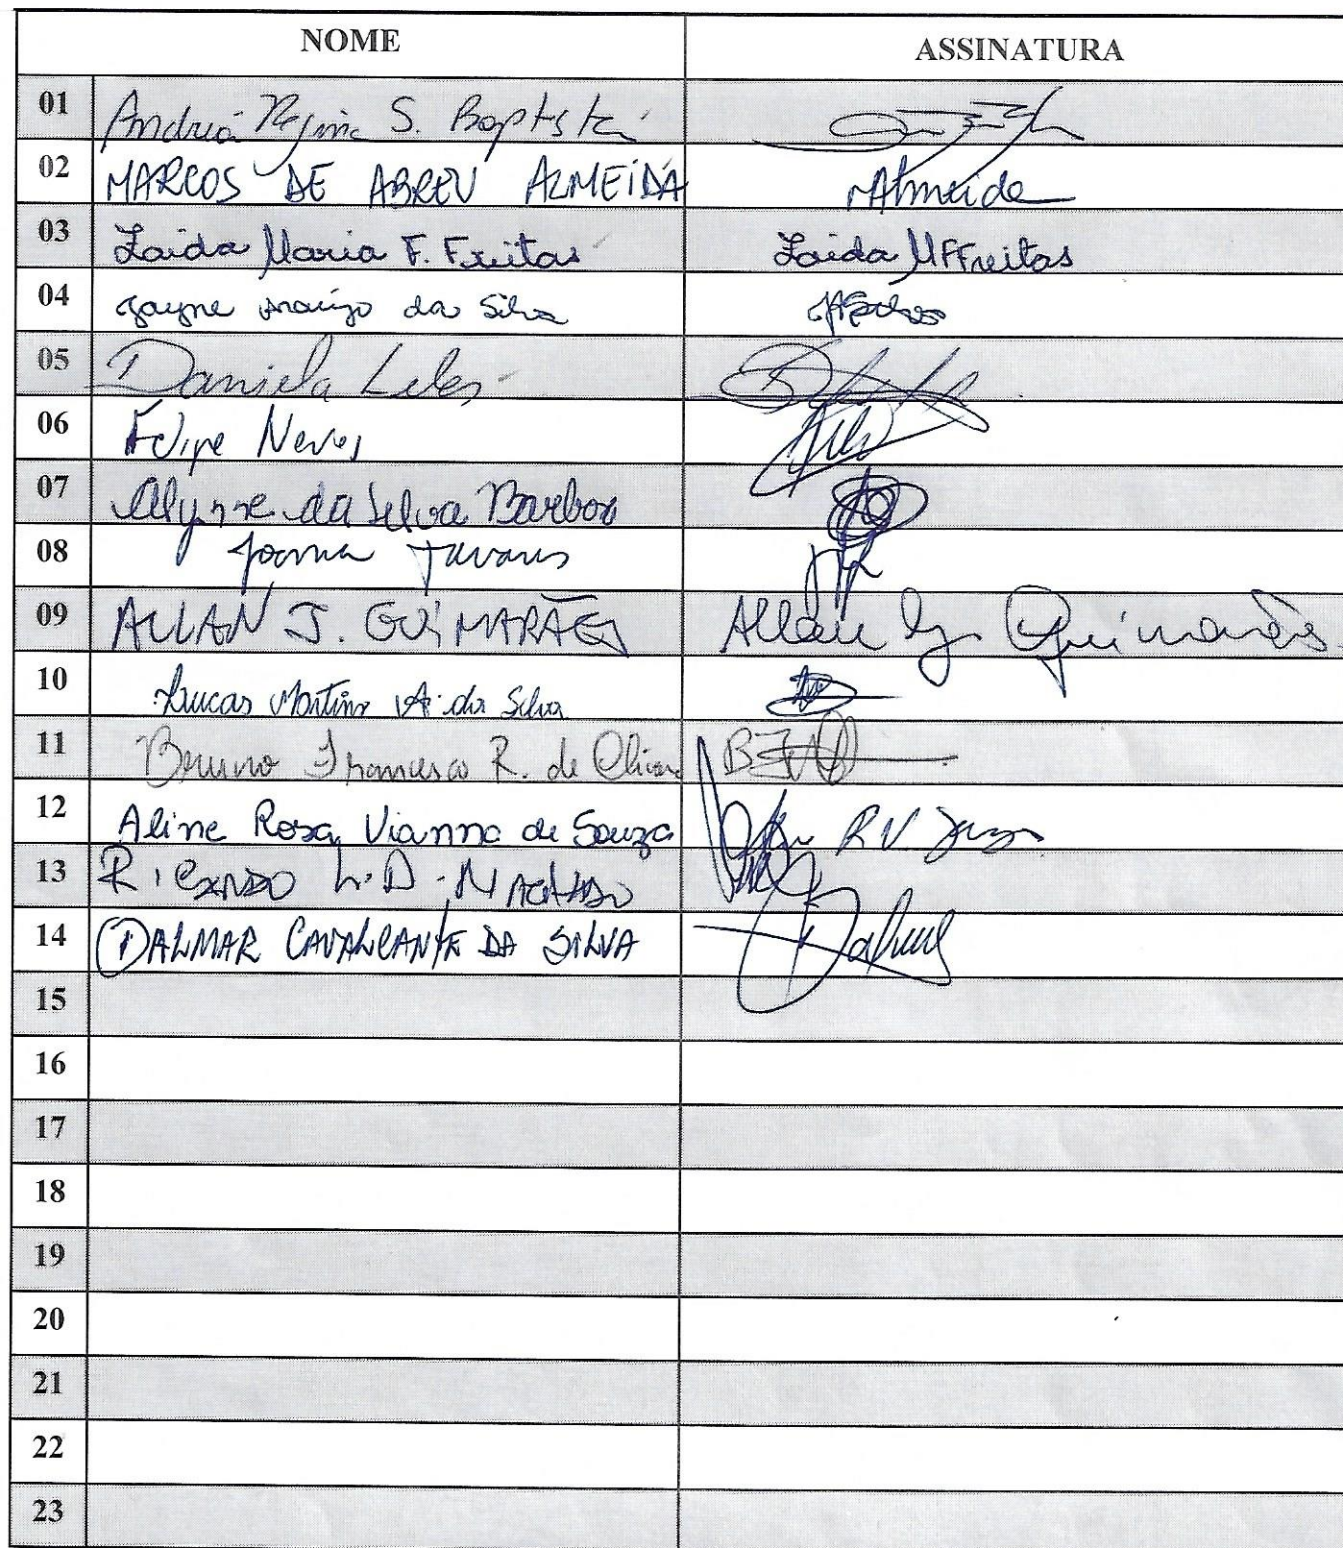 NOME ASSINATURA
01 Andréa Regina S. Baptista
02 MARCOS DE ABREU ALMEIDA MAlmeida
03 Laida Maria F. Freitas Laida MFFreitas
04 Jayne Araújo da Silva
05 Daniela Leles
06 Felipe Neves
07 Alynne da Silva Barbosa
08 Joanna Tavares
09 ALLAN J. GUIMARÃES Allan J. Guimarães
10 Lucas Martins A. da Silva
11 Bruno Francesco R. de Oliveira
12 Aline Rosa Vianna de Souza Aline R V Souza
13 RICARDO L.D. MACHADO
14 DALMAR CAVALCANTE DA SILVA
15
16
17
18
19
20
21
22
23